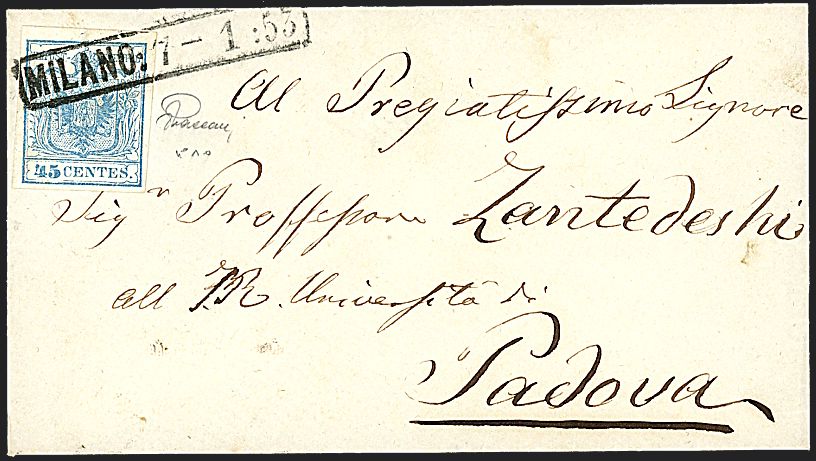 MILANO. 7 – 1 :53
45 CENTES.
Al Pregiatissimo Signore
Sig.r Proffessore Zantedeshi
all I.R. Università di
Padova